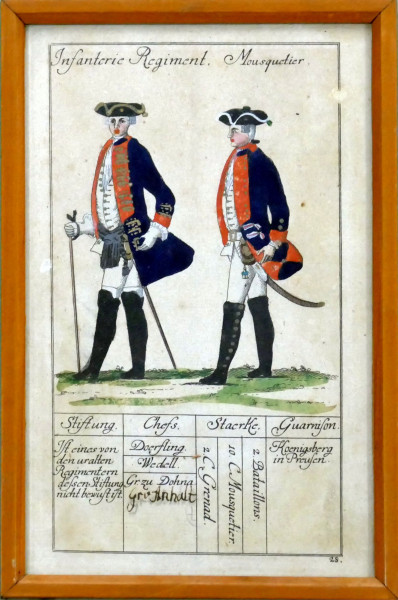 Infanterie Regiment. Mousquetier.
Stiftung. Chefs. Staerke. Guarnison.
Ist eines von
den uralten
Regimentern
dessen Stiftung
nicht bewust ist
Doerfling.
Wedell.
Gr: zu Dohna
Gr: Anhalt
2. C. Grenad.
10. C. Mousquetier.
2. Bataillons.
Koenigsberg
in Preusen.
28.